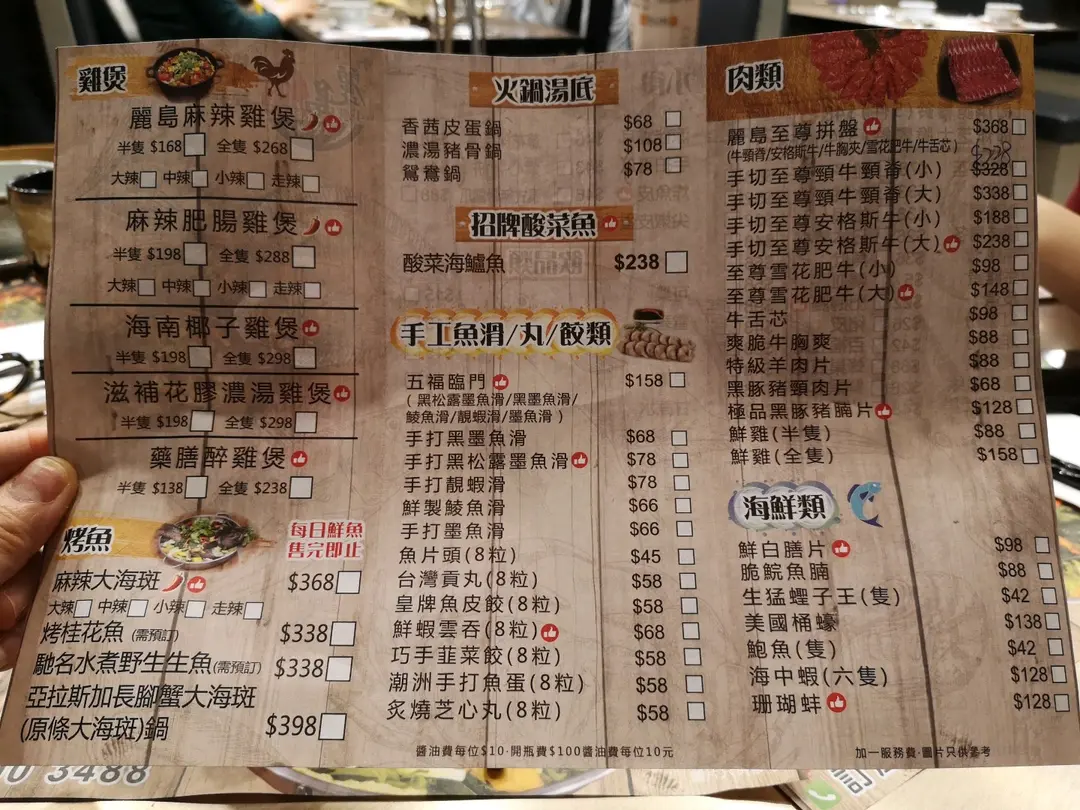 雞煲
麗島麻辣雞煲
半隻 $168 全隻 $268
大辣 中辣 小辣 走辣
麻辣肥腸雞煲
半隻 $198 全隻 $288
大辣 中辣 小辣 走辣
海南椰子雞煲
半隻 $198 全隻 $298
滋補花膠濃湯雞煲
半隻 $198 全隻 $298
藥膳醉雞煲
半隻 $138 全隻 $238
烤魚
每日鮮魚
售完即止
麻辣大海斑 $368
大辣 中辣 小辣 走辣
烤桂花魚(需預訂) $338
馳名水煮野生生魚(需預訂) $338
亞拉斯加長腳蟹大海斑
(原條大海斑)鍋 $398
火鍋湯底
香茜皮蛋鍋 $68
濃湯豬骨鍋 $108
鴛鴦鍋 $78
招牌酸菜魚
酸菜海鱸魚 $238
手工魚滑/丸/餃類
五福臨門 $158
(黑松露墨魚滑/黑墨魚滑/
鯪魚滑/靚蝦滑/墨魚滑)
手打黑墨魚滑 $68
手打黑松露墨魚滑 $78
手打靚蝦滑 $78
鮮製鯪魚滑 $66
手打墨魚滑 $66
魚片頭(8粒) $45
台灣貢丸(8粒) $58
皇牌魚皮餃(8粒) $58
鮮蝦雲吞(8粒) $68
巧手韮菜餃(8粒) $58
潮洲手打魚蛋(8粒) $58
炙燒芝心丸(8粒) $58
醬油費每位$10·開瓶費$100醬油費每位10元
肉類
麗島至尊拼盤 $368
(牛頸脊/安格斯牛/牛胸夾/雪花肥牛/牛舌芯) $228
手切至尊頸牛頸脊(小) $328
手切至尊頸牛頸脊(大) $338
手切至尊安格斯牛(小) $188
手切至尊安格斯牛(大) $238
至尊雪花肥牛(小) $98
至尊雪花肥牛(大) $148
牛舌芯 $98
爽脆牛胸爽 $88
特級羊肉片 $88
黑豚豬頸肉片 $68
極品黑豚豬腩片 $128
鮮雞(半隻) $88
鮮雞(全隻) $158
海鮮類
鮮白膳片 $98
脆鯇魚腩 $88
生猛蟶子王(隻) $42
美國桶蠔 $138
鮑魚(隻) $42
海中蝦(六隻) $128
珊瑚蚌 $128
加一服務費·圖片只供參考
3488